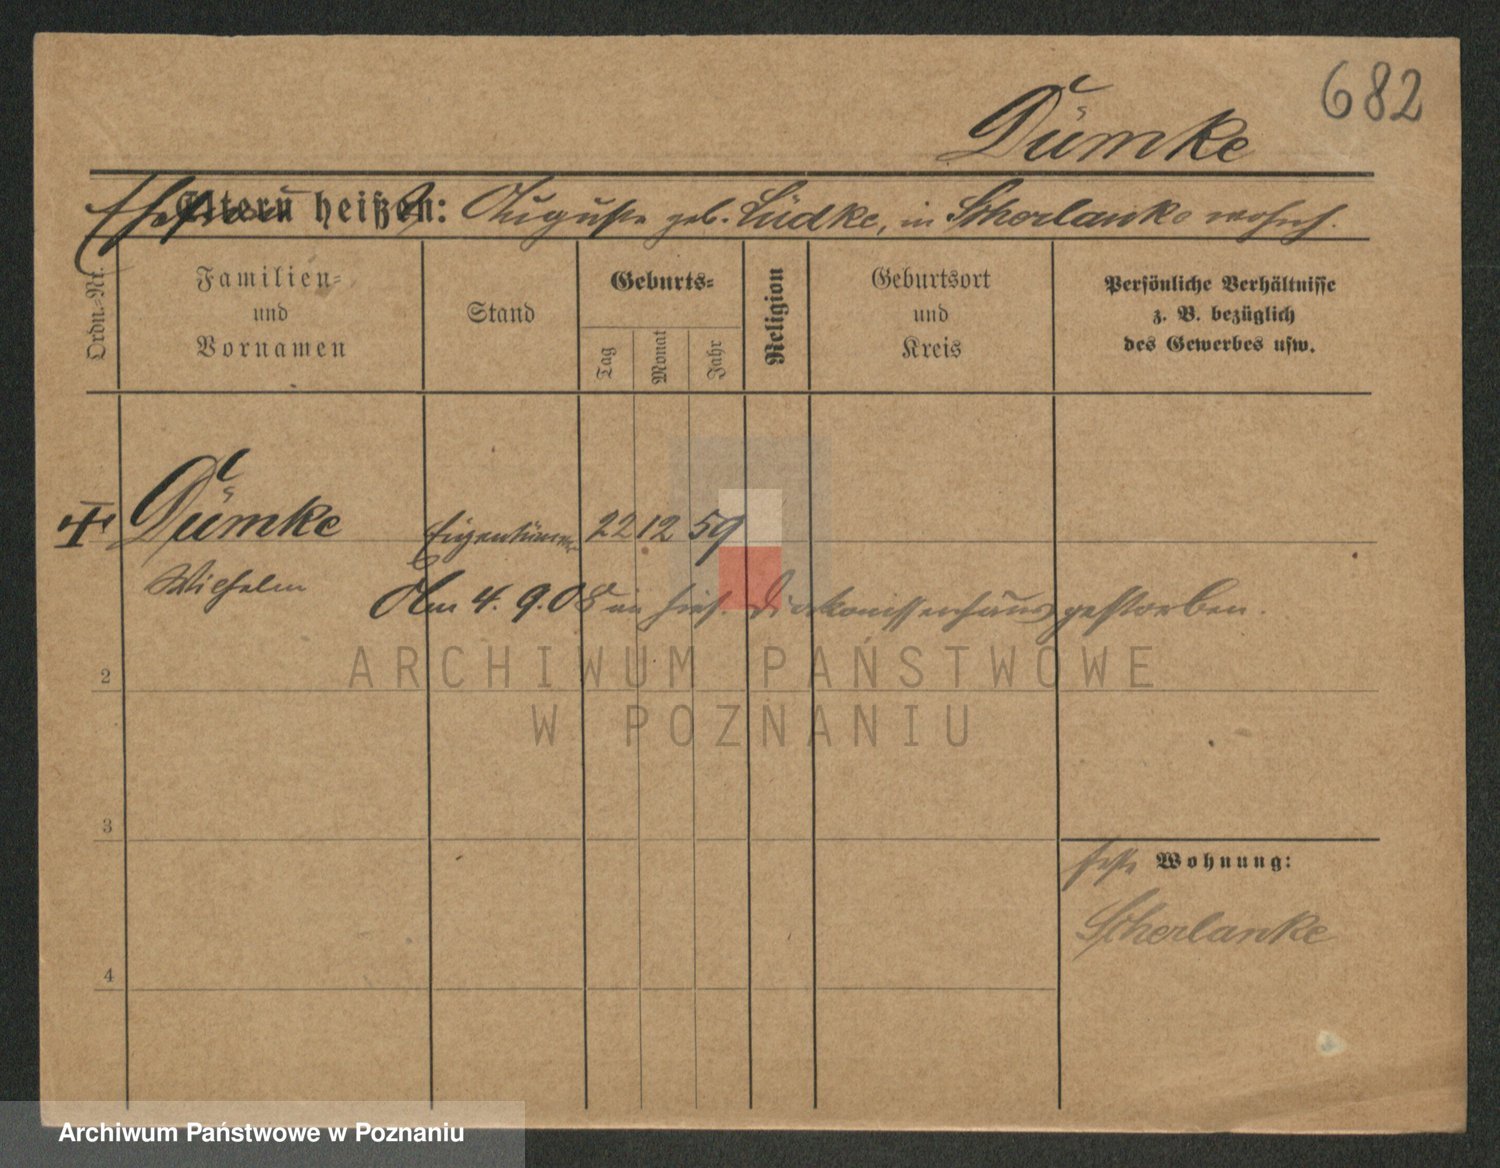 682
Dümke
Eltern heißen:
Ehefrau Auguste geb. Lüdke, in Scherlanke wohnh.
Ordn.-Nr.
Familien-
und
Vornamen
Stand
Geburts-
Tag
Monat
Jahr
Religion
Geburtsort
und
Kreis
Persönliche Verhältnisse
z. B. bezüglich
des Gewerbes usw.
Dümke
Eigentümer 22 12 59
Wilhelm
Am 4. 9. 08 im hies. Diakonissenhaus gestorben.
ARCHIWUM PAŃSTWOWE
W POZNANIU
2
3
4
Wohnung:
Scherlanke
Archiwum Państwowe w Poznaniu